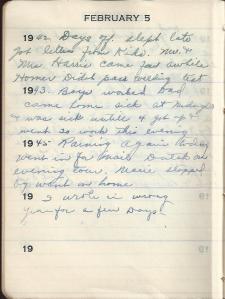 FEBRUARY 5
1942 Days off. slept late
Got letters from Kids. Mr. &
Mrs Harris came for awhile
Homer Didnt pass test
1943. Boys worked Dad
came home sick at
& was sick untill 4 got up &
went to work this evening
1945 Raining again today
went in for mail.
evening tour. Marie stopped
by went on home
19 I wrote in wrong
year for a few Days.
19